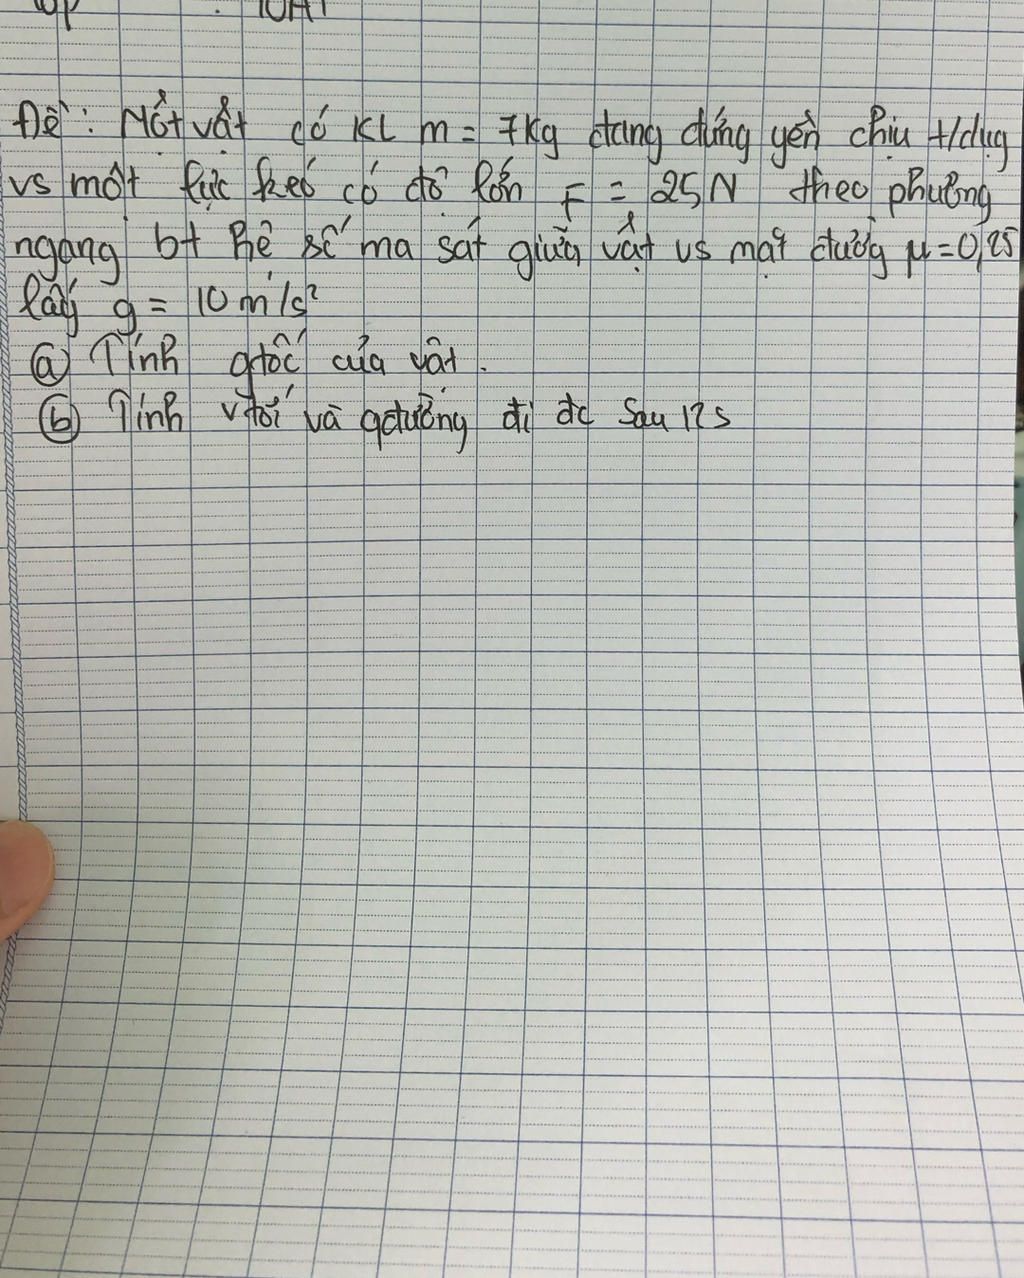 : 10A1
Đề: Một vật có KL m = 7kg đang đứng yên chịu t/dụg
vs một lực kéo có độ lớn F = 25N theo phương
ngang bt hệ số ma sát giữa vật vs mặt đườg µ = 0,25
lấy g = 10 m/s²
ⓐ Tính gtốc của vật.
ⓑ Tính vtốc và qđường đi đc sau 12s